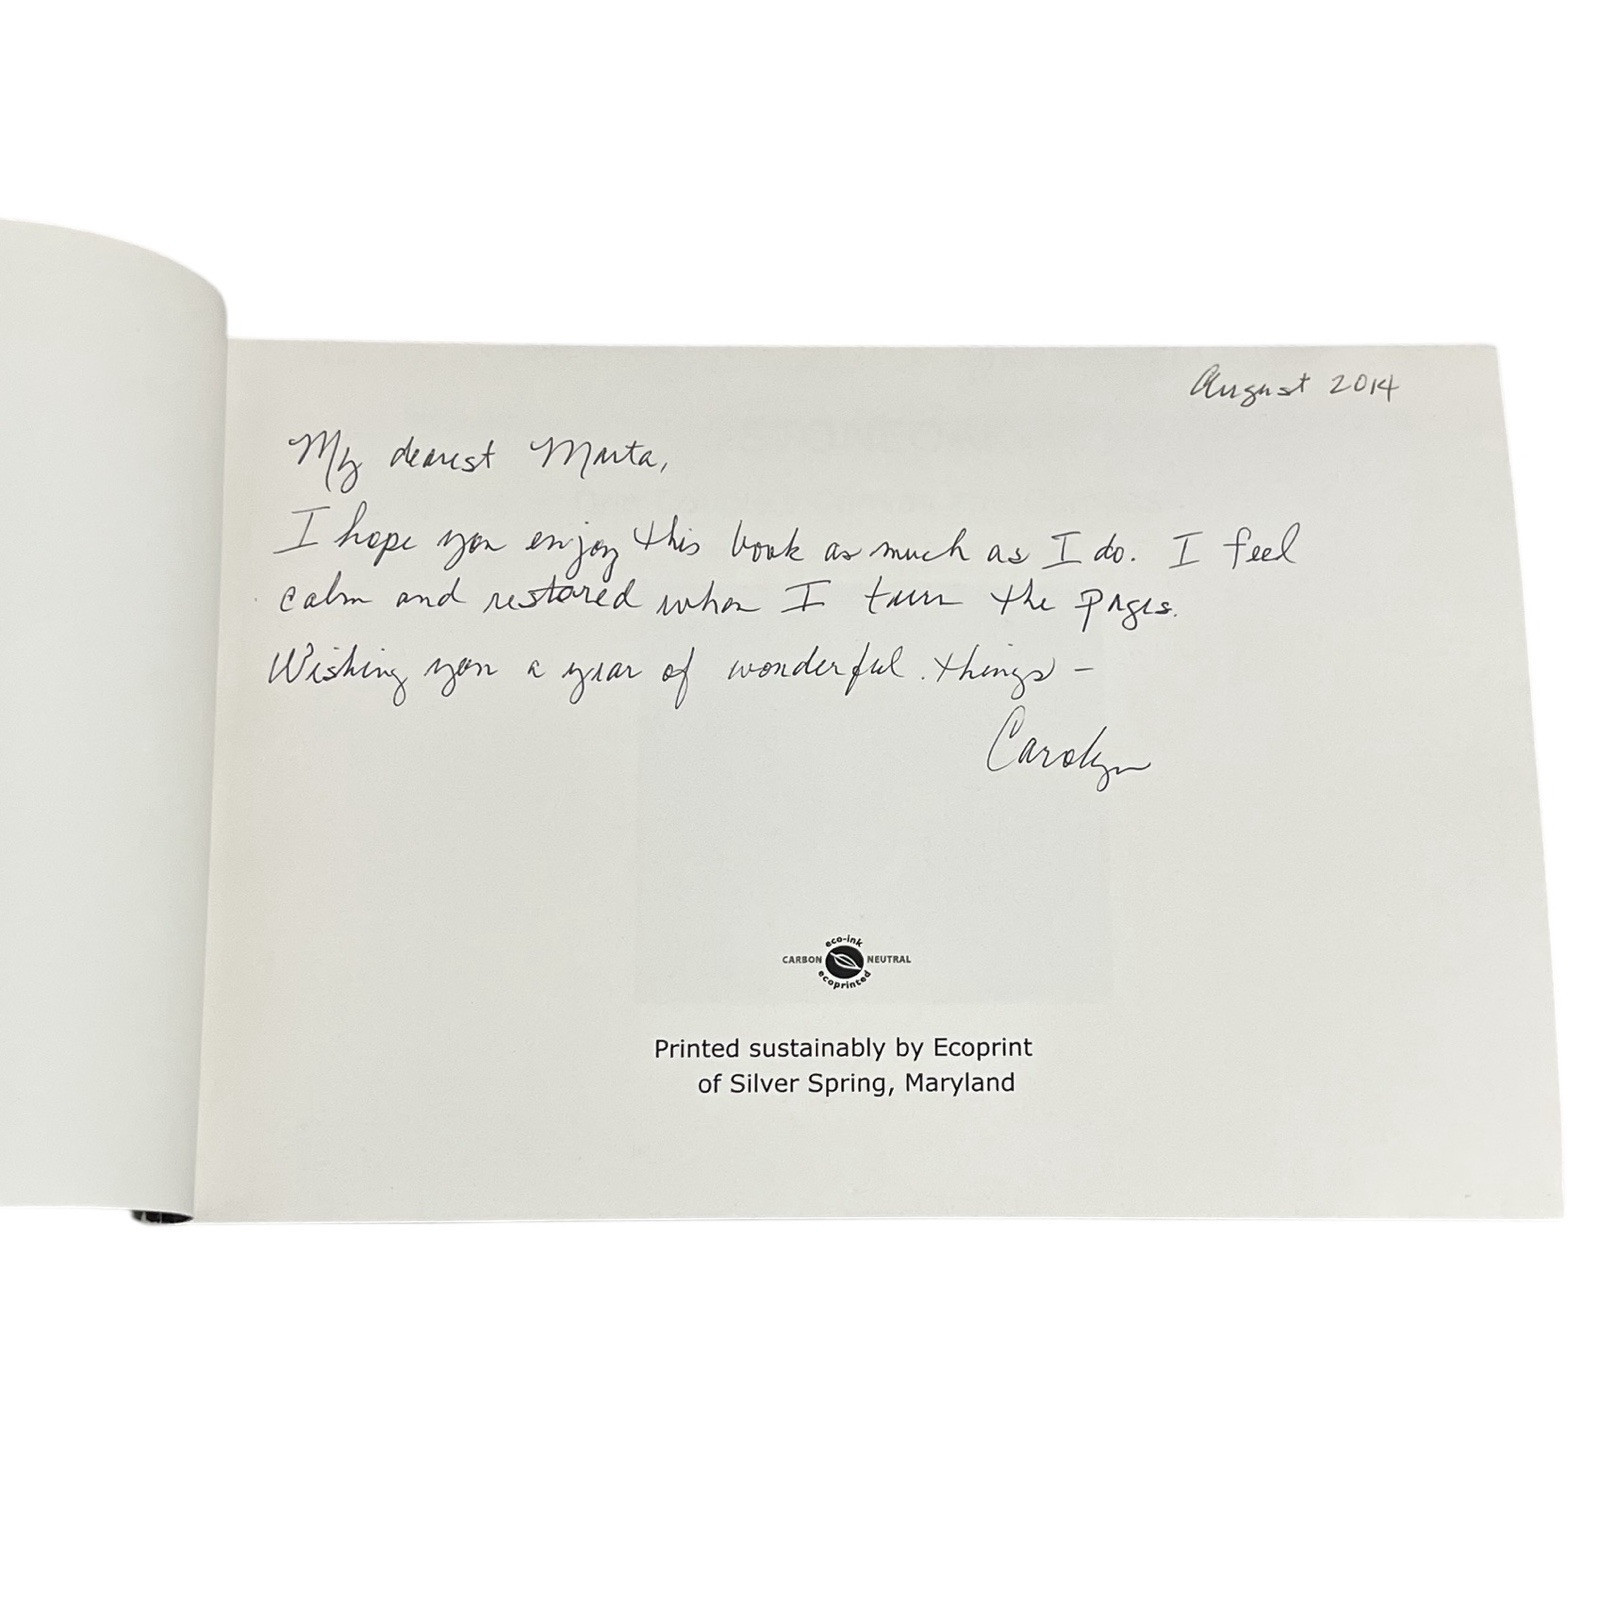 August 2014
My dearest Marta,
I hope you enjoy this book as much as I do. I feel
calm and restored when I turn the pages.
Wishing you a year of wonderful things –
Carolyn
eco-ink
CARBON NEUTRAL
ecoprinted
Printed sustainably by Ecoprint
of Silver Spring, Maryland